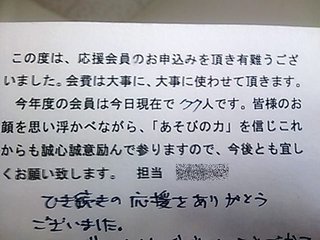 この度は、応援会員のお申込みを頂き有難うござ
いました。会費は大事に、大事に使わせて頂きます。
今年度の会員は今日現在で 77人です。皆様のお
顔を思い浮かべながら、「あそびの力」を信じこれ
からも誠心誠意励んで参りますので、今後とも宜し
くお願い致します。 担当
ひき続きの応援をありがとう
ございました。